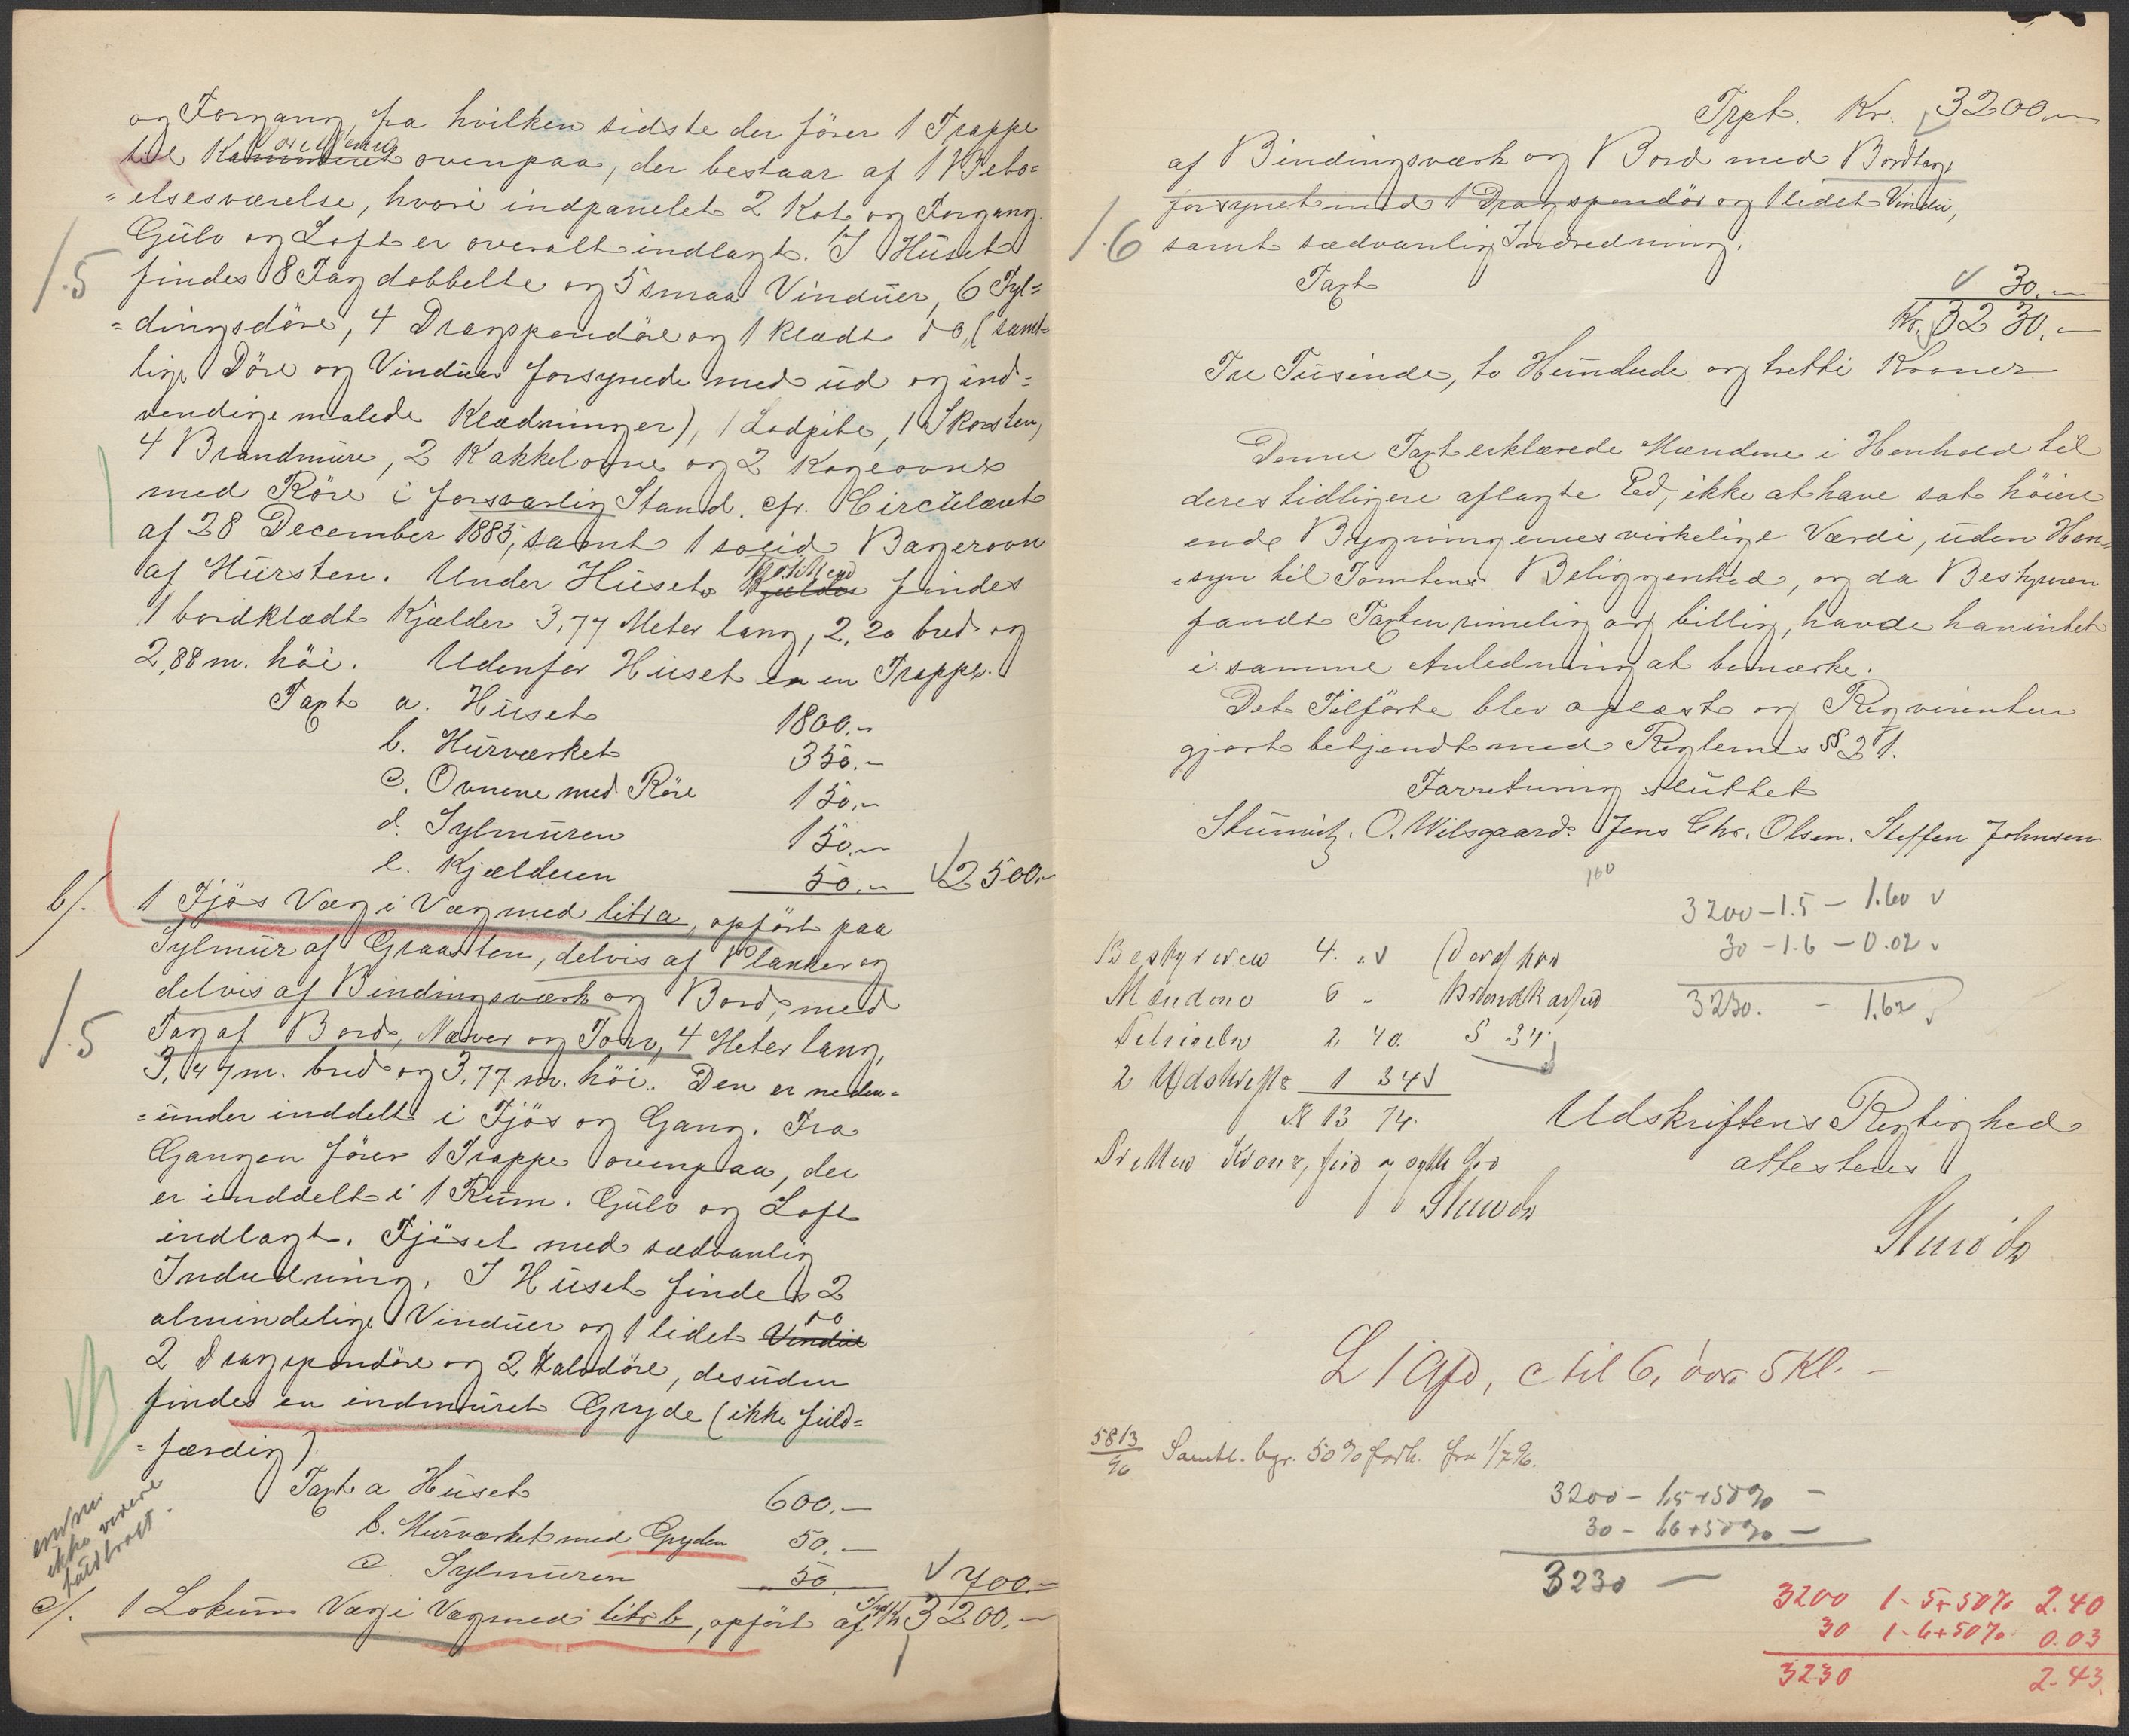 og Forgang, fra hvilken sidste der förer 1 Trappe
til Kammeret ovenpaa, der bestaar af 1 Bebo=
=elsesværelse, hvori indpanelet 2 Kot og Forgang.
Gülv og Loft er overalt indlagt. I Hüset
1.5
findes 8 Fag dobbelte og 5 smaa Vindüer, 6 Fyl=
=dingsdöre, 4 Dragspondöre og 1 klædt do, (samt=
lige Döre og Vindüer forsynede med üd og ind=
vendige malede Klædninger), 1 Lodpibe, 1 Skorsten,
4 Brandmüre, 2 Kakkelovne og 2 Kogeovne
med Röre i forsvarlig Stand. cfr. Circülæret
af 28 December 1885, samt 1 solid Bagerovn
af Mürsten. Under Hüset Kjelder findes
1 bordklædt Kjælder 3,77 Meter lang, 2,20 bred og
2,88 m. höi. Udenfor Hüset er en Trappe.
Taxt a. Hüset 1800.-
b. Mürværket 350.-
c. Ovnene med Röre 150.-
d. Sylmüren 150.-
e. Kjælderen 50.- 2500.-
b/. 1 Fjös Væg i Væg med litr a, opfört paa
Sylmür af Graasten, delvis af Planker og
delvis af Bindingsværk og Bord, med
1.5
Tag af Bord, Næver og Torv, 4 Meter lang,
3,47 m. bred og 3,77 m. höi. Den er neden=
=ünder inddelt i Fjös og Gang. Fra
Gangen förer 1 Trappe ovenpaa, der
er inddelt i 1 Rüm. Gülv og Loft
indlagt. Fjöset med sædvanlig
Indredning. I Hüset findes 2
do
almindelige Vindüer og 1 lidet Vindue
2 Dragspondöre og 2 Halvdöre, desüden
findes en indmüret Gryde (ikke füld=
=færdig).
Taxt a Hüset 600.-
b. Mürværket med Gryden 50.-
c. Sylmüren 50 700.-
endnu
ikke være
fuldbragt.
c/. 1 Lokum Væg i Væg med litr b, opfört af Trpt Kr 3200.-
Trpt. Kr. 3200.-
af Bindingsværk og Bord med Bordtag,
forsynet med 1 Dragspondör og 1 lidet Vindu,
1.6 samt sædvanlig Indredning.
Taxt 30.-
Kr. 3230.-
Tre Tüsinde, to Hündrede og tretti Kroner
Denne Taxt erklærede Mændene i Henhold til
deres tidligere aflagte Ed, ikke at have sat höiere
end Bygningernes virkelige Værdi, uden Hen=
=syn til Tomtens Beliggenhed, og da Bestyreren
fandt Taxten rimelig og billig, havde han intet
i samme Anledning at bemærke.
Det Tilförte blev oplæst og Reqvirenten
gjort bekjendt med Reglernes § 21.
Forretning slüttet
O. Wilsgaard. Jens Chr. Olsen. Steffen Johnsen
160
3200 - 1.5 - 1.60
30 - 1.6 - 0.02
3230. - 1.62
Bestyreren 4. "
Mændene 6 "
2 40
2 Udskrifts 1 34
Kr 13 74.
Brandkassen
5 34
Udskriftens Rigtighed
attesteres
L 1 Afd, c til 6, öv 5 Kl. -
5813/96 Samtl. byg. 50% forh. fra 1/7 96.
3200 - 1.5 + 50% -
30 - 1.6 + 50% -
3230 -
3200 1-5+50% 2.40
30 1-6+50% 0.03
3230 2.43